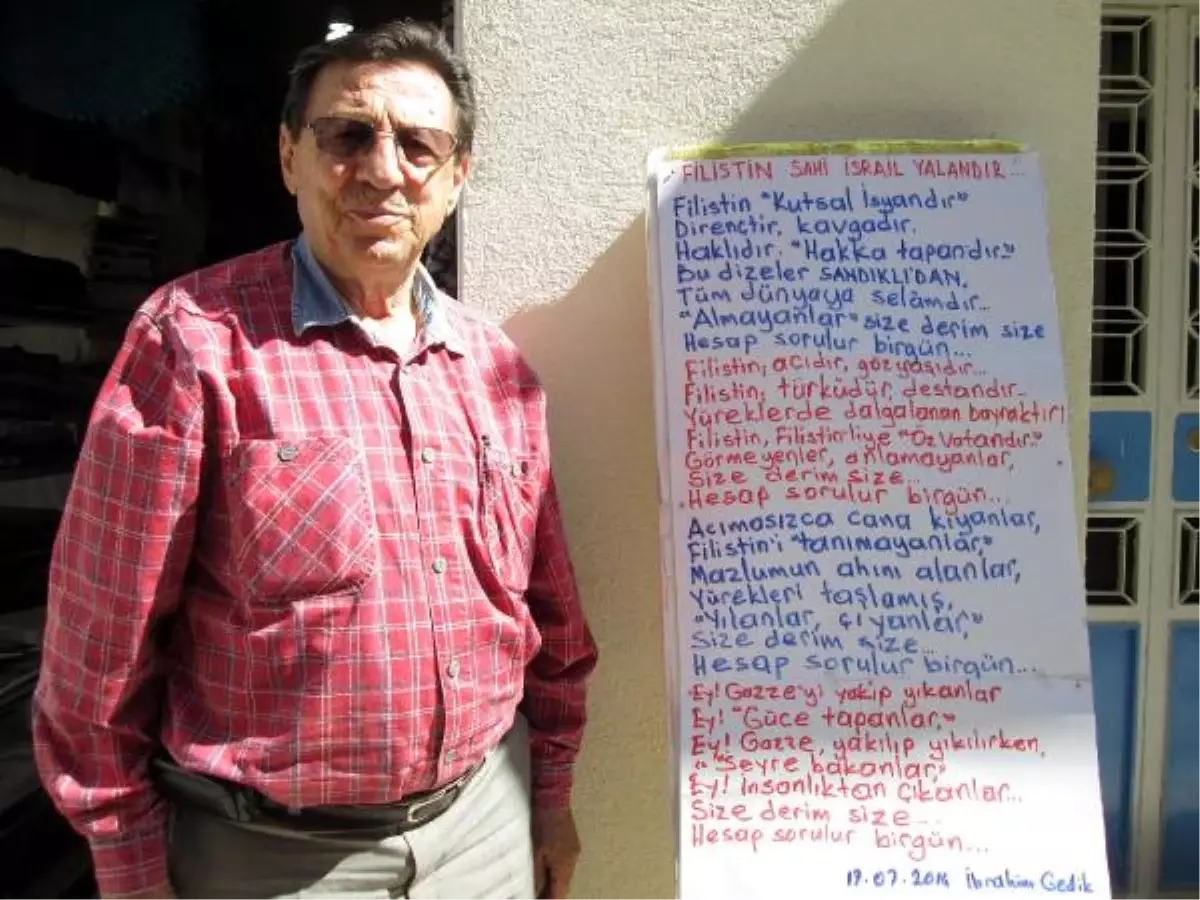 FİLİSTİN SAHİ İSRAİL YALANDIR...
Filistin "Kutsal İsyandır"
Dirençtir, kavgadır.
Haklıdır. "Hakka tapandır."
Bu dizeler SANDIKLI'DAN,
Tüm dünyaya selâmdır...
"Almayanlar" size derim size
Hesap sorulur birgün...
Filistin, acıdır, gözyaşıdır...
Filistin, türküdür, destandır..
Yüreklerde dalgalanan bayraktır!
Filistin, Filistinliye "Öz Vatandır."
Görmeyenler, anlamayanlar,
Size derim size...
Hesap sorulur birgün...
Acımasızca cana kıyanlar,
Filistin'i "tanımayanlar,"
Mazlumun ahını alanlar,
Yürekleri taşlamış,
"Yılanlar, çıyanlar,"
Size derim size...
Hesap sorulur birgün...
Ey! Gazze'yi yakıp yıkanlar
Ey! "Güce tapanlar,"
Ey! Gazze, yakılıp yıkılırken,
"Seyre bakanlar,"
Ey! İnsanlıktan çıkanlar...
Size derim size...
Hesap sorulur birgün...
19.07.2014 İbrahim Gedik